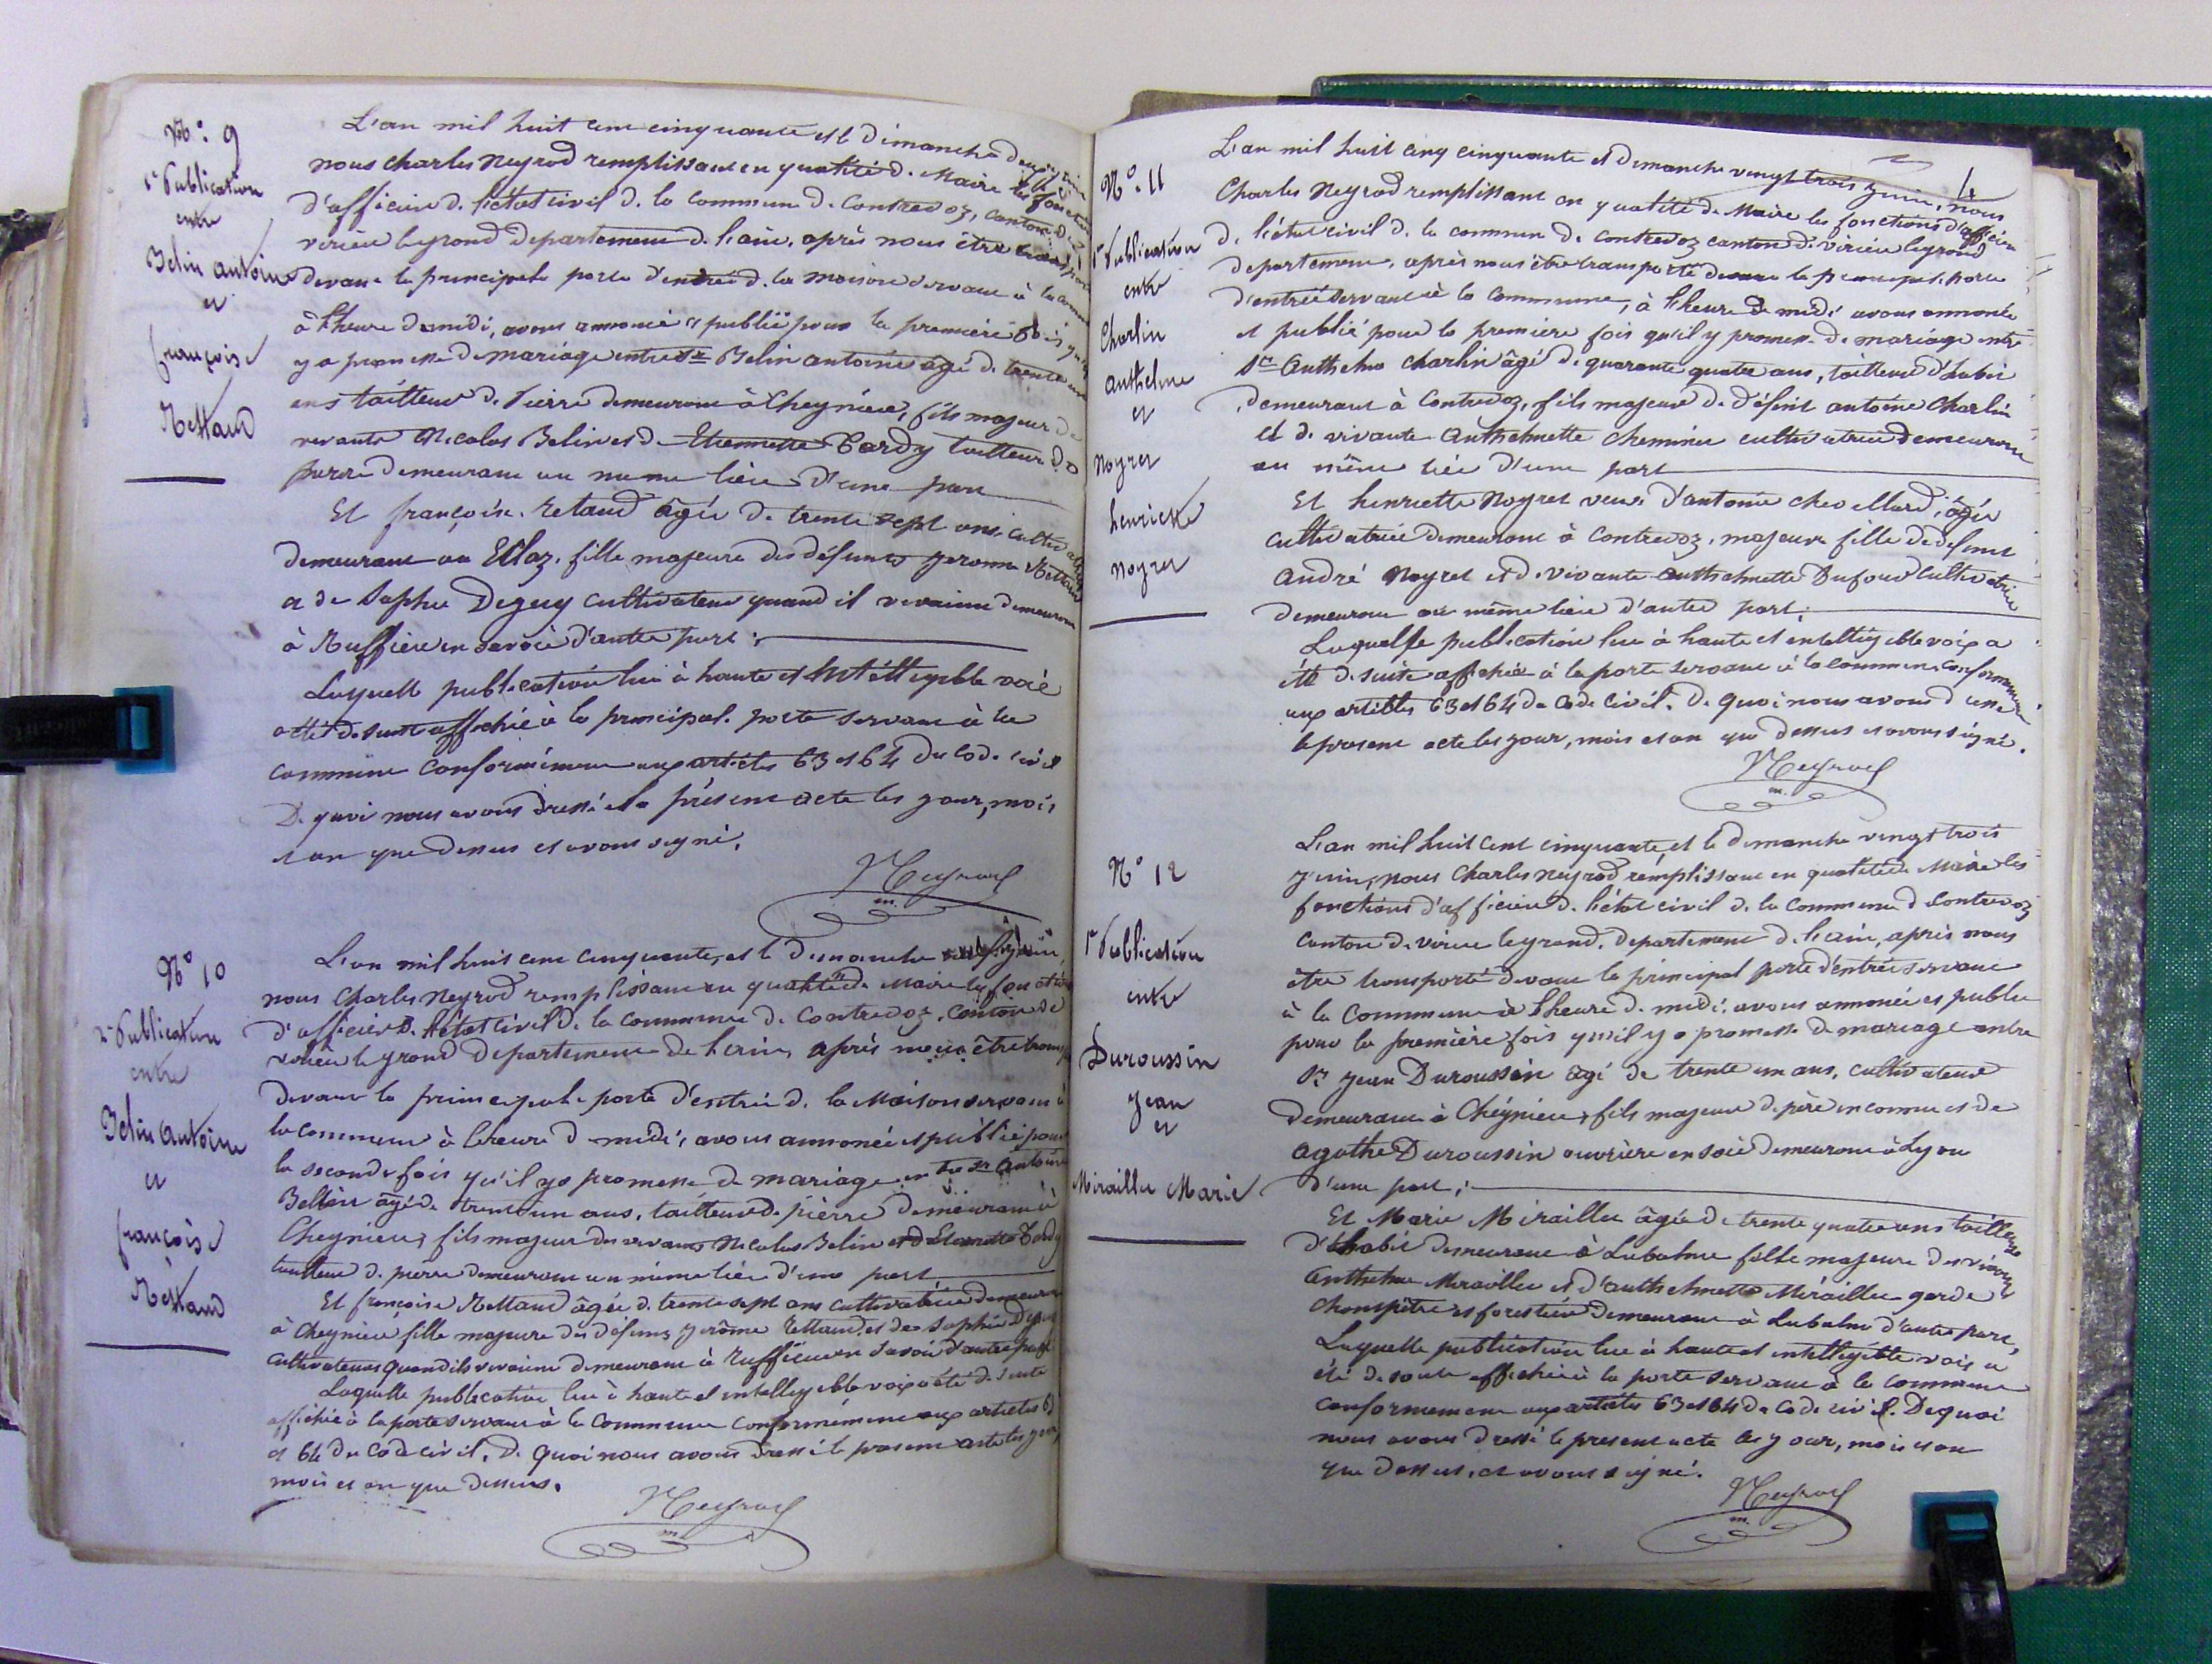 N°: 9
1e Publication
entre
Belin antoine
et
françoise
Rettaud
L'an mil huit cent cinquante et le dimanche
nous charles neyrod remplissant en qualité d. Maire les fonctions
d'officier d. l'état civil d. la commune d. Contrevoz, canton de
virieu legrand departement d. l'ain, après nous être transporté
devant la principale porte d'entrée d. la maison servant à la commune
à l'heure de midi, avons annoncé et publié pour la première fois qu'il
y a promesse de mariage entre sr Belin antoine âgé d. trente un
ans tailleur d. Pierre demeurant à Cheynieu, fils majeur de
vivants Nicolas Belin et de Etiennette Tardy tailleur de
pierre demeurant au meme lieu d'une part
Et françoise Retaud âgée de trente sept ans, cultivatrice
demeurant au Ecloz, fille majeure des défunts Jerome Rettaud
et de Sophie Deguy cultivateur quand il vivaient demeurant
à Ruffieu en Savoie d'autre part;
Laquelle publication lue à haute et intelligible voie
a été de suite affichée à la principal. porte servant à la
commune conformément aux articles 63 et 64 du Code civil
De quoi nous avons dressé le présent acte les jour, mois
et an que dessus et avons signé.
Neyrod
m.
N° 10
2e Publication
entre
Belin Antoine
et
françoise
Rettaud
L'an mil huit cent cinquante, et le dimanche juin,
nous Charles neyrod remplissant en qualité de Maire les fonctions
d'officier d. l'état Civil d. la Commune d. Contrevoz, Canton de
virieu le grand departement de l'ain, après nous être transporté
devant la principale porte d'entrée d. la Maison servant à
la commune à l'heure d midi, avons annoncé et publié pour
la seconde fois qu'il y a promesse de mariage entre sr Antoine
Bellin âgé de trente un ans, tailleur d. pierre demeurant à
Cheynieu, fils majeur des vivants Nicolas Belin et d. Etiennette Tardy
tailleur d. pierre demeurant au même lieu d'une part
Et françoise Rettaud âgée d. trente sept ans cultivatrice demeurant
à Cheynieu fille majeure des défunts Jerôme Rettaud et de Sophie Deguy
cultivateurs quand ils vivaient demeurant à Ruffieu en Savoie d'autre part
Laquelle publication lue à haute et intelligible voix a été d. suite
affichée à la porte servant à la Commune conformément aux articles 63
et 64 du Code civil. D. quoi nous avons dressé le présent acte les jour,
mois et an que dessus.
Neyrod
m.
4
N°. 11
1e Publication
entre
Charlin
anthelme
et
noyret
henriette
noyret
L'an mil huit cinq cinquante et dimanche vingt trois juin, nous
Charles Neyrod remplissant en qualité d. Maire les fonctions d'officier
d. l'état civil d. la commune d. contrevoz canton d. virieu legrand
departement, après nous être transporté devant la principal. porte
d'entrée servant à la commune, à l'heure de midi avons annoncé
et publié pour la première fois qu'il y promesse d. mariage entre
sr Anthelme Charlin âgé d. quarante quatre ans, tailleur d'habit
demeurant à Contrevoz, fils majeur de défunt antoine Charlin
et d. vivante Anthelmette cheminée cultivatrice demeurant
au même lieu d'une part
Et henriette Noyret veuve d'antoine chevillard, âgée
cultivatrice demeurant à Contrevoz, majeure fille de défunt
andré Noyret et d. vivante Anthelmette Dufour cultivatrice
demeurant au même lieu d'autre part;
Laquelle publication lue à haute et intelligible voix a
été d. suite affichée à la porte servant à la commune conformément
aux articles 63 et 64 du Code Civil. De quoi nous avons dressé
le present acte les jour, mois et an que dessus et avons signé.
Neyrod
m.
N° 12
1e Publication
entre
Duroussin
Jean
et
Mirailler Marie
L'an mil huit cent cinquante, et le dimanche vingt trois
juin, nous Charles neyrod remplissant en qualité de Maire les
fonctions d'officier d. l'état civil d. la commune d Contrevoz
Canton d. virieu legrand, departement d. l'ain, après nous
être transporté devant la principal porte d'entrée servant
à la Commune à l'heure d. midi, avons annoncé et publié
pour la première fois qu'il y a promesse de mariage entre
Sr Jean Duroussin âgé de trente un ans, cultivateur
demeurant à Cheynieu, fils majeur d. père inconnu et de
Agathe Duroussin ouvrière en soie demeurant à Lyon
d'une part;
Et Marie Mirailler âgée de trente quatre ans tailleuse
d'habit demeurant à Labalme fille majeure des vivants
Anthelme Mirailler et d'anthelmette Mirailler garde
champêtre et forestier demeurant à Labalme d'autre part,
Laquelle publication lue à haute et intelligible voix a
été de suite affichée à la porte servant à la commune
conformément aux articles 63 et 64 du Code civil. De quoi
nous avons dressé le present acte les jour, mois et an
que dessus, et avons signé.
Neyrod
m.